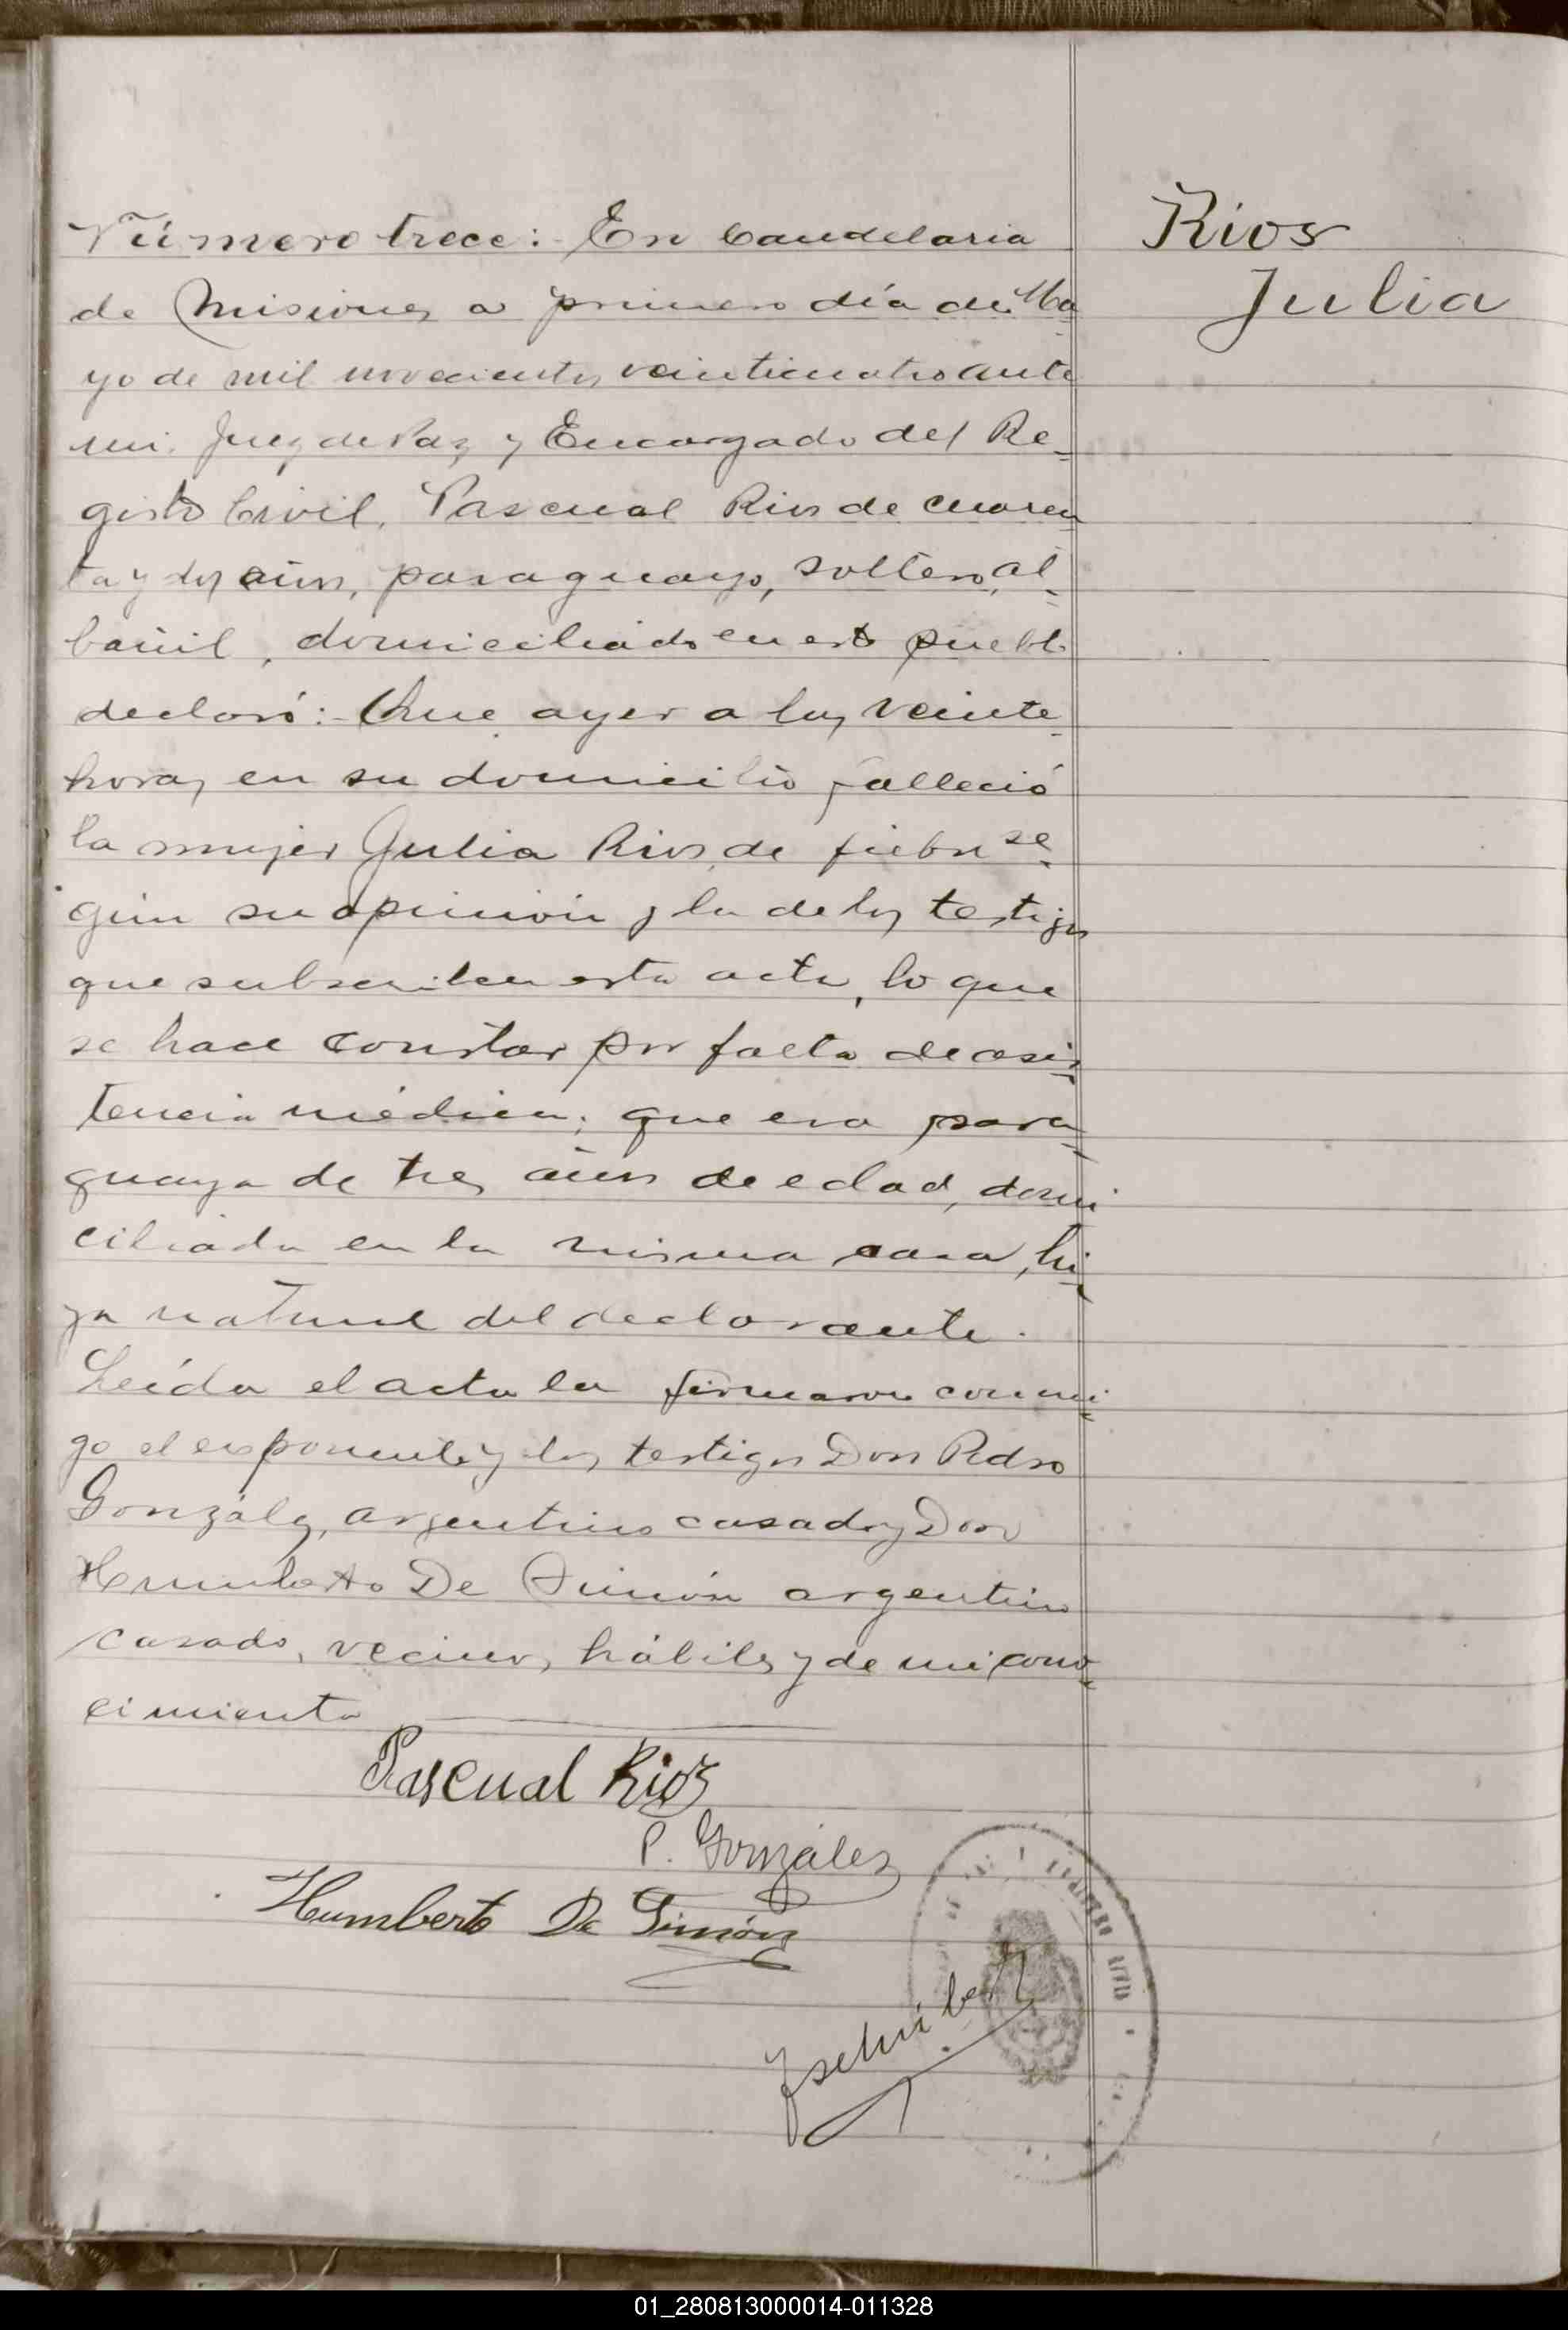 Número trece:- En Candelaria
Rios
de Misiones a primero día de Ma-
Julia
yo de mil novecientos veinticuatro ante
mi, Juez de Paz y Encargado del Re-
gistro Civil, Pascual Rios de cuaren
ta y dos años, paraguayo, soltero, al-
bañil, domiciliado en este pueblo
declaró:- Que ayer a las veinte
horas en su domicilio falleció
la mujer Julia Rios, de fiebre se-
gún su opinión y la de los testigos
que subscriben esta acta, lo que
se hace constar por falta de asis-
tencia médica; que era para-
guaya de tres años de edad, domi
ciliada en la misma casa, hi-
ja natural del declarante.
Leída el acta la firmaron conmi-
go el exponente y los testigos Don Pedro
González, argentino casado y Don
Humberto De Simón argentino
casado, vecinos, hábiles y de mi cono-
cimiento
Pascual Rios
P. González
Humberto De Simón
01_280813000014-011328